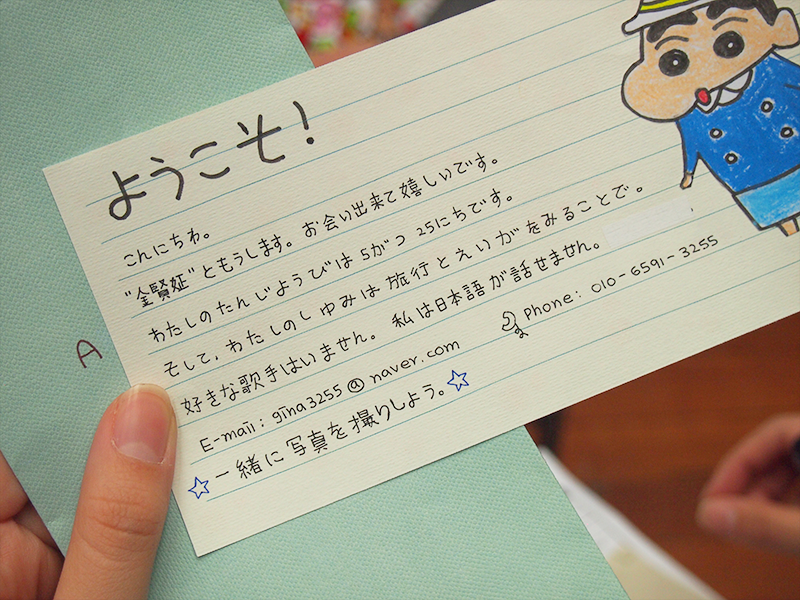 ようこそ!
こんにちわ。
"金賢延"ともうします。お会い出来て嬉しいです。
わたしのたんじようびは 5がつ 25にちです。
そして、わたしのしゆみは 旅行とえいがをみることで。
好きな歌手はいません。私は日本語が話せません。
E-mail: gina3255@naver.com Phone: 010-6591-3255
一緒に写真を撮りしよう。
A